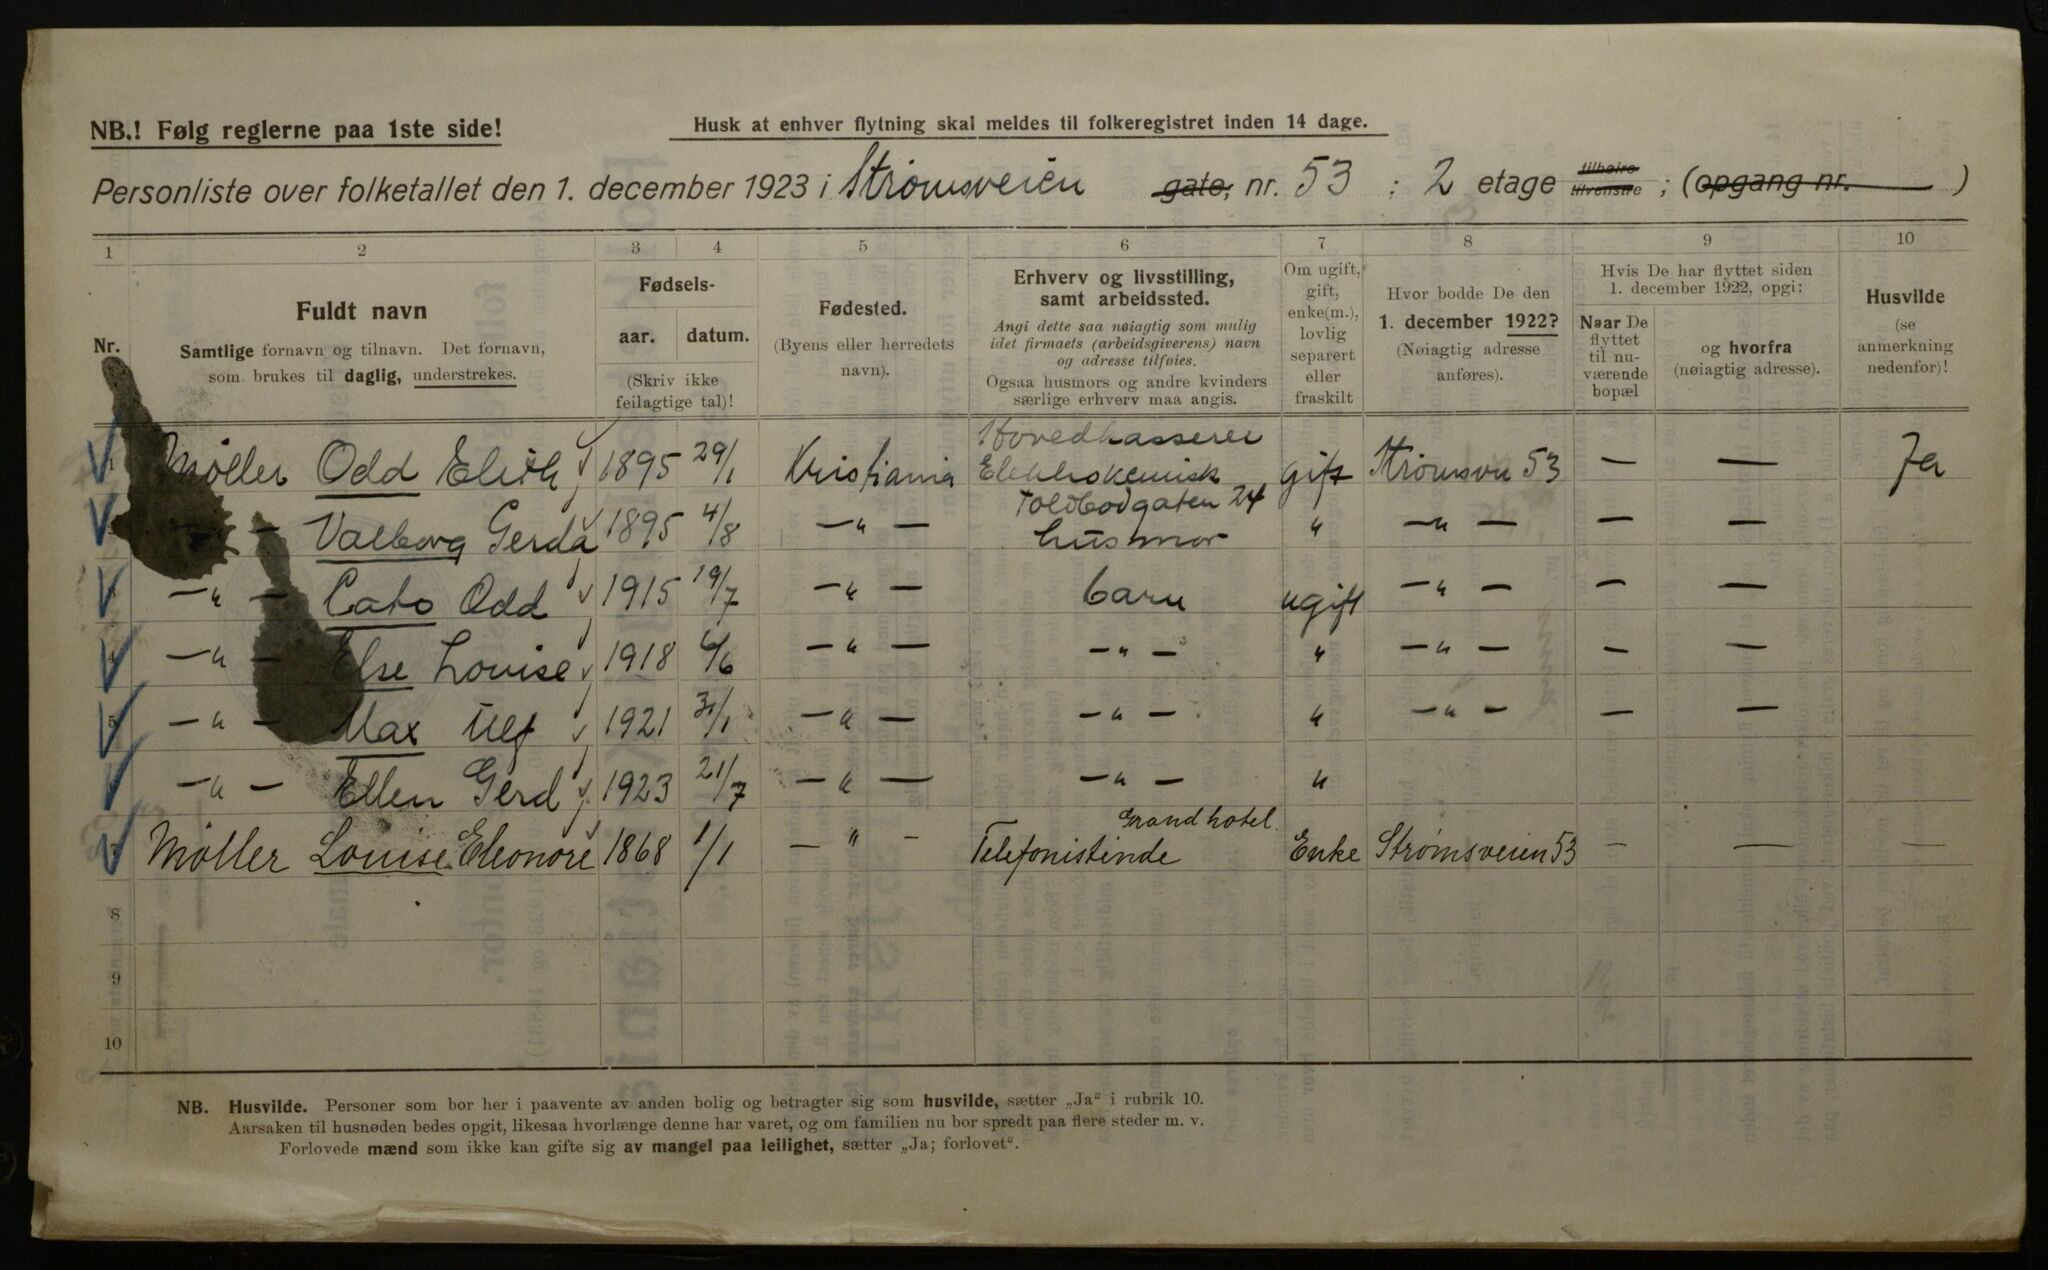 NB.! Følg reglerne paa 1ste side!
Husk at enhver flytning skal meldes til folkeregistret inden 14 dage.
Personliste over folketallet den 1. december 1923 i Strømsveien gate; nr. 53 ; 2 etage tilhøire tilvenstre ; (opgang nr. )
1 2 3 4 5 6 7 8 9 10
Nr.
Fuldt navn
Samtlige fornavn og tilnavn. Det fornavn,
som brukes til daglig, understrekes.
Fødsels-
aar. datum.
(Skriv ikke
feilagtige tal)!
Fødested.
(Byens eller herredets
navn).
Erhverv og livsstilling,
samt arbeidssted.
Angi dette saa nøiagtig som mulig
idet firmaets (arbeidsgiverens) navn
og adresse tilføies.
Ogsaa husmors og andre kvinders
særlige erhverv maa angis.
Om ugift,
gift,
enke(m.),
lovlig
separert
eller
fraskilt
Hvor bodde De den
1. december 1922?
(Nøiagtig adresse
anføres).
Hvis De har flyttet siden
1. december 1922, opgi:
Naar De
flyttet
til nu-
værende
bopæl
og hvorfra
(nøiagtig adresse).
Husvilde
(se
anmerkning
nedenfor)!
Hovedkasserer
1 Møller Odd Elith 1895 29/1 Kristiania Elektrokemisk gift Strømsvn 53 — — Ja
Toldbodgaten 24
— Valborg Gerda 1895 4/8 — " — husmor " — " — — —
— " — Cato Odd 1915 19/7 — " — barn ugift — " — — —
4 — " — Else Louise 1918 6/6 — " — — " — " — " — — —
5 — " — Max Ulf 1921 31/1 — " — — " — " — " — — —
— " — Ellen Gerd 1923 21/7 — " — — " — "
Grand hotel.
7 Møller Louise Eleonore 1868 1/1 — " — Telefonistinde Enke Strømsveien 53 — — —
8
9
10
NB. Husvilde. Personer som bor her i paavente av anden bolig og betragter sig som husvilde, sætter „Ja" i rubrik 10.
Aarsaken til husnøden bedes opgit, likesaa hvorlænge denne har varet, og om familien nu bor spredt paa flere steder m. v.
Forlovede mænd som ikke kan gifte sig av mangel paa leilighet, sætter „Ja; forlovet".